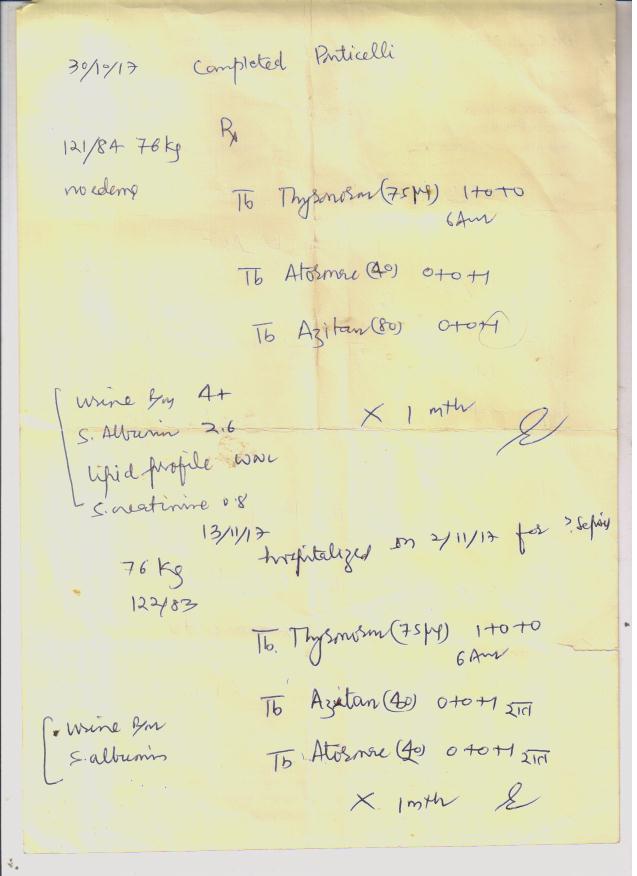 30/10/17 Completed Ponticelli
Rx
121/84 76 kg
no edema
Tb Thyronorm (75µg) 1+0+0
6 Am
Tb Atormac (40) 0+0+1
Tb Azitan (80) 0+0+1
urine 4+
S. Albumin 2.6
lipid profile WNL
S. creatinine 0.8
X 1 mth
13/11/17 hospitalized on 2/11/17 for ? sepsis
76 Kg
122/83
Tb. Thyronorm (75µg) 1+0+0
6 Am
Tb Azitan (40) 0+0+1 रात
Tb. Atormac (40) 0+0+1 रात
urine
S. albumin
X 1 mth